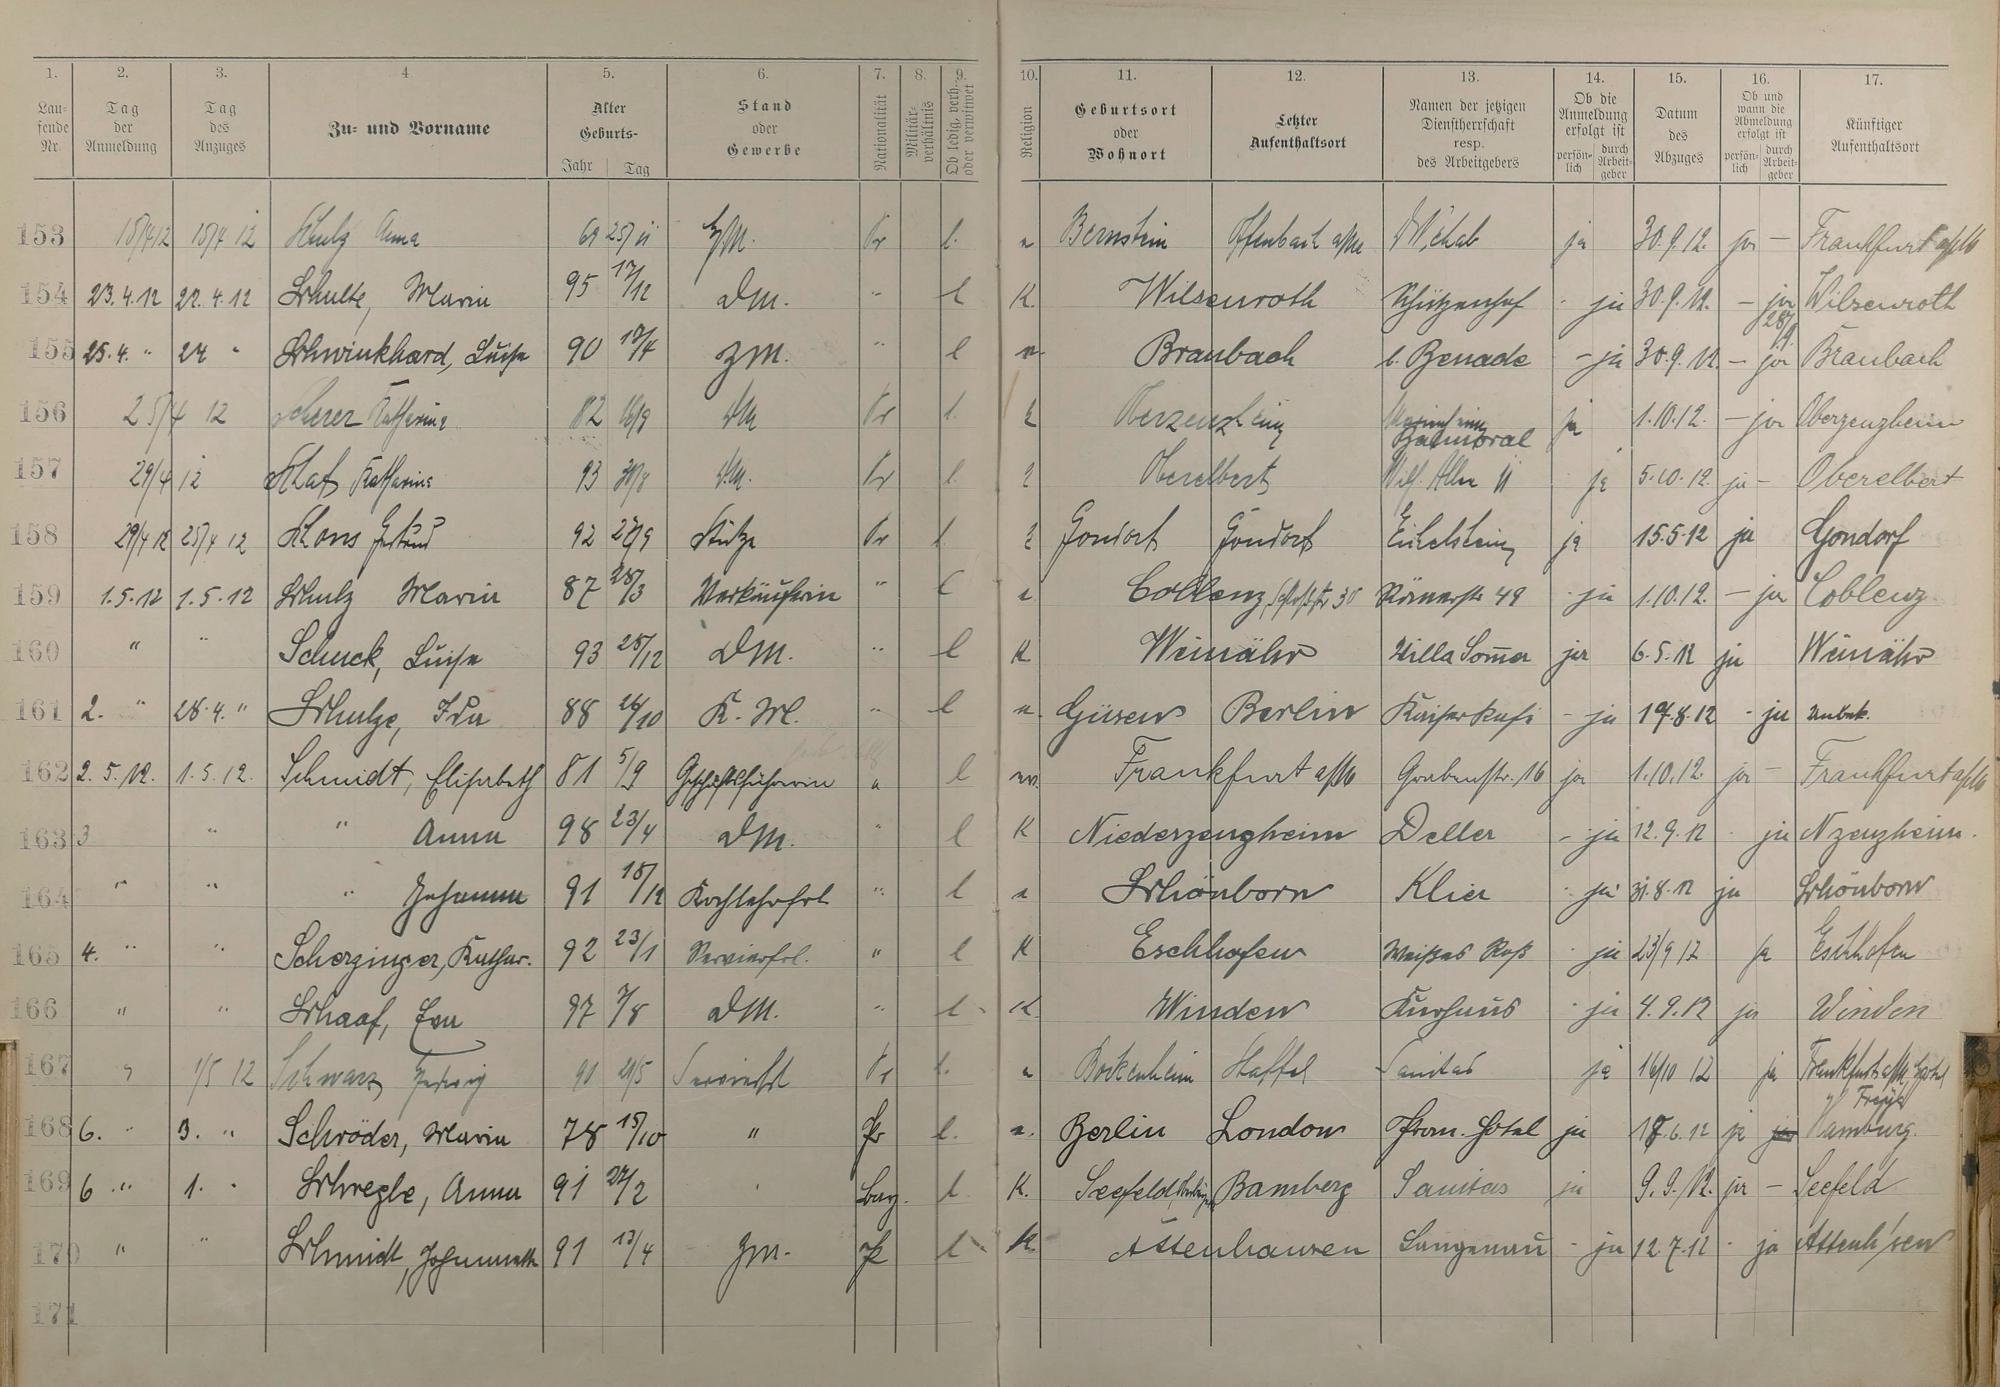 1. 2. 3. 4 5. 6. 7. 8. 9. 10. 11. 12. 13. 14. 15. 16. 17.
Lau-
fende
Nr.
Tag
der
Anmeldung
Tag
des
Anzuges
Zu- und Vorname
Alter
Geburts-
Jahr Tag
Stand
oder
Gewerbe
Nationalität
Militär-
verhältnis
Ob ledig, verh.
oder verwitwet
Religion
Geburtsort
oder
Wohnort
Letzter
Aufenthaltsort
Namen der jetzigen
Dienstherrschaft
resp.
des Arbeitgebers
Ob die
Anmeldung
erfolgt ist
persön-
lich
durch
Arbeit-
geber
Datum
des
Abzuges
Ob und
wann die
Abmeldung
erfolgt ist
persön-
lich
durch
Arbeit-
geber
Künftiger
Aufenthaltsort
153 15/4 12 15/4 12 Schulz Anna 69 25/11 Zm. Pr l. Bernstein Offenbach a/M ja 30.9.12. ja — Frankfurt a/M
154 23.4.12 22.4.12 Schulte, Maria 95 17/12 DM. " l K. Wilsenroth Schützenhof - ja 30.9.12. — ja Wilsenroth
155 25.4. " 24 " Schwinkhard, Luise 90 12/4 ZM. " l Braubach b. Benade - ja 30.9.12. — ja 28/9 Braubach
156 25/4 12 Scherer Katharina 82 16/9 DM Pr l. Oberzenzheim Balmoral ja 1.10.12. — ja Oberzenzheim
157 29/4 12 Katharina 93 30/8 D.M. Pr l Oberelbert ja 5.10.12. ja — Oberelbert
158 29/4 12 25/4 12 Schons Gertrud 92 27/9 Stütze Pr l Gondorf Gondorf ja 15.5.12 ja Gondorf
159 1.5.12 1.5.12 Schulz Maria 87 28/3 Verkäuferin " l Coblenz, Schloßstr 30 Römerstr 49 - ja 1.10.12. — ja Coblenz
160 " " Schuck, Luise 93 28/12 DM. " l K Weinähr Villa Sommer ja 6.5.12 ja Weinähr
161 2. " 28.4. " Schulze, Ida 88 26/10 K. M. " l Güsen Berlin - ja 17.8.12 - ja unbek.
162 2.5.12. 1.5.12. Schmidt, Elisabeth 81 5/9 Geschäftsführerin " l Frankfurt a/M Grabenstr. 16 ja 1.10.12. ja — Frankfurt a/M
163 3 " " Anna 98 23/4 DM. " l K Niederzengheim Deller - ja 12.9.12 ja Nzenzheim.
164 " " " Johanna 91 18/12 Kochlehrfrl " l Schönborn Klier ja 31.8.12 ja Schönborn
165 4. " " Scherzinger, Kathar. 92 23/1 Servierfrl. " l K Eschhofen Weißes Roß - ja 23/9 12 ja Eschhofen
166 " " Schaaf, Eva 97 7/8 DM. " l K. Winden Kurhaus - ja 4.9.12 ja Winden
167 " 1/5 12 Schwarz Hedwig 90 21/5 Servierfrl Pr l. Bockenheim Staffel Sanitas ja 16/10 12 ja Frankfurt a/M, Hotel
168 6. " 3. " Schröder, Maria 78 15/10 " Pr l. Berlin London Prom. Hotel ja 17.6.12 ja Hamburg.
169 6 " 1. " Schregle, Anna 91 27/2 Bay. l K. Seefeld Bamberg Sanitas ja 9.9.12. ja — Seefeld
170 " " Schmidt, Johannette 91 13/4 Zm. Pr l K. Attenhausen Langenau - ja 12.7.12 - ja Attenh'sen
171